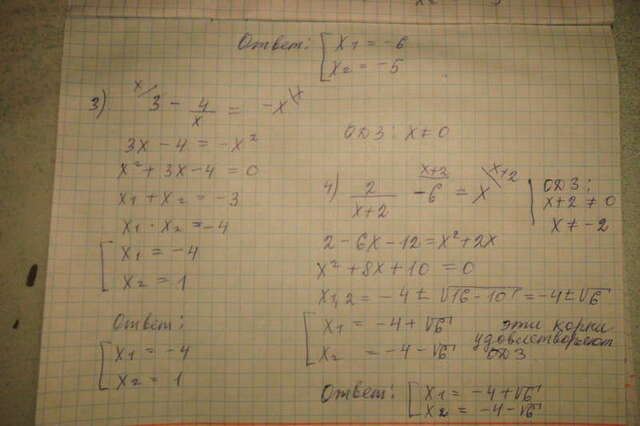 Ответ: [ x₁ = -6
x₂ = -5
3) x/ 3 - 4/x = -x \x
ОДЗ: x ≠ 0
3x - 4 = -x²
x² + 3x - 4 = 0
x₁ + x₂ = -3
x₁ · x₂ = -4
[ x₁ = -4
x₂ = 1
Ответ:
[ x₁ = -4
x₂ = 1
4) 2/(x+2) x+2/ -6 = x \x+2
ОДЗ:
x+2 ≠ 0
x ≠ -2
2 - 6x - 12 = x² + 2x
x² + 8x + 10 = 0
x₁,₂ = -4 ± √16-10 = -4 ± √6
[ x₁ = -4 + √6
x₂ = -4 - √6
эти корни
удовлетворяют
ОДЗ
Ответ: [ x₁ = -4 + √6
x₂ = -4 - √6